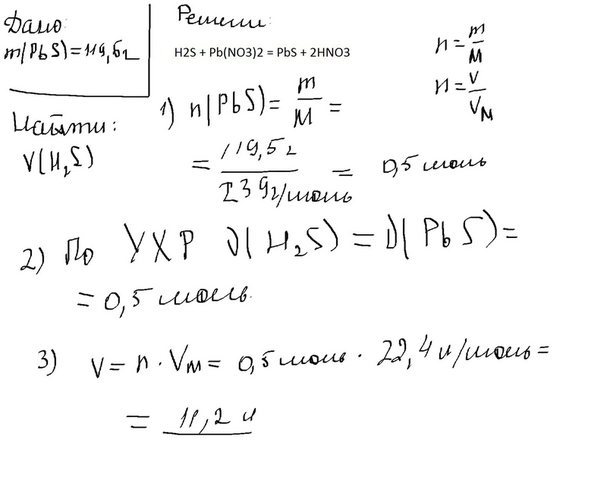 Дано:
m(PbS)=119,5г
Найти:
V(H₂S)
Решени:
H2S + Pb(NO3)2 = PbS + 2HNO3
n = m/M
n = V/Vм
1) n(PbS) = m/M =
= 119,5г / 239г/моль = 0,5 моль
2) По УХР ν(H₂S) = ν(PbS) =
= 0,5 моль.
3) V = n · Vм = 0,5 моль · 22,4 л/моль =
= 11,2 л